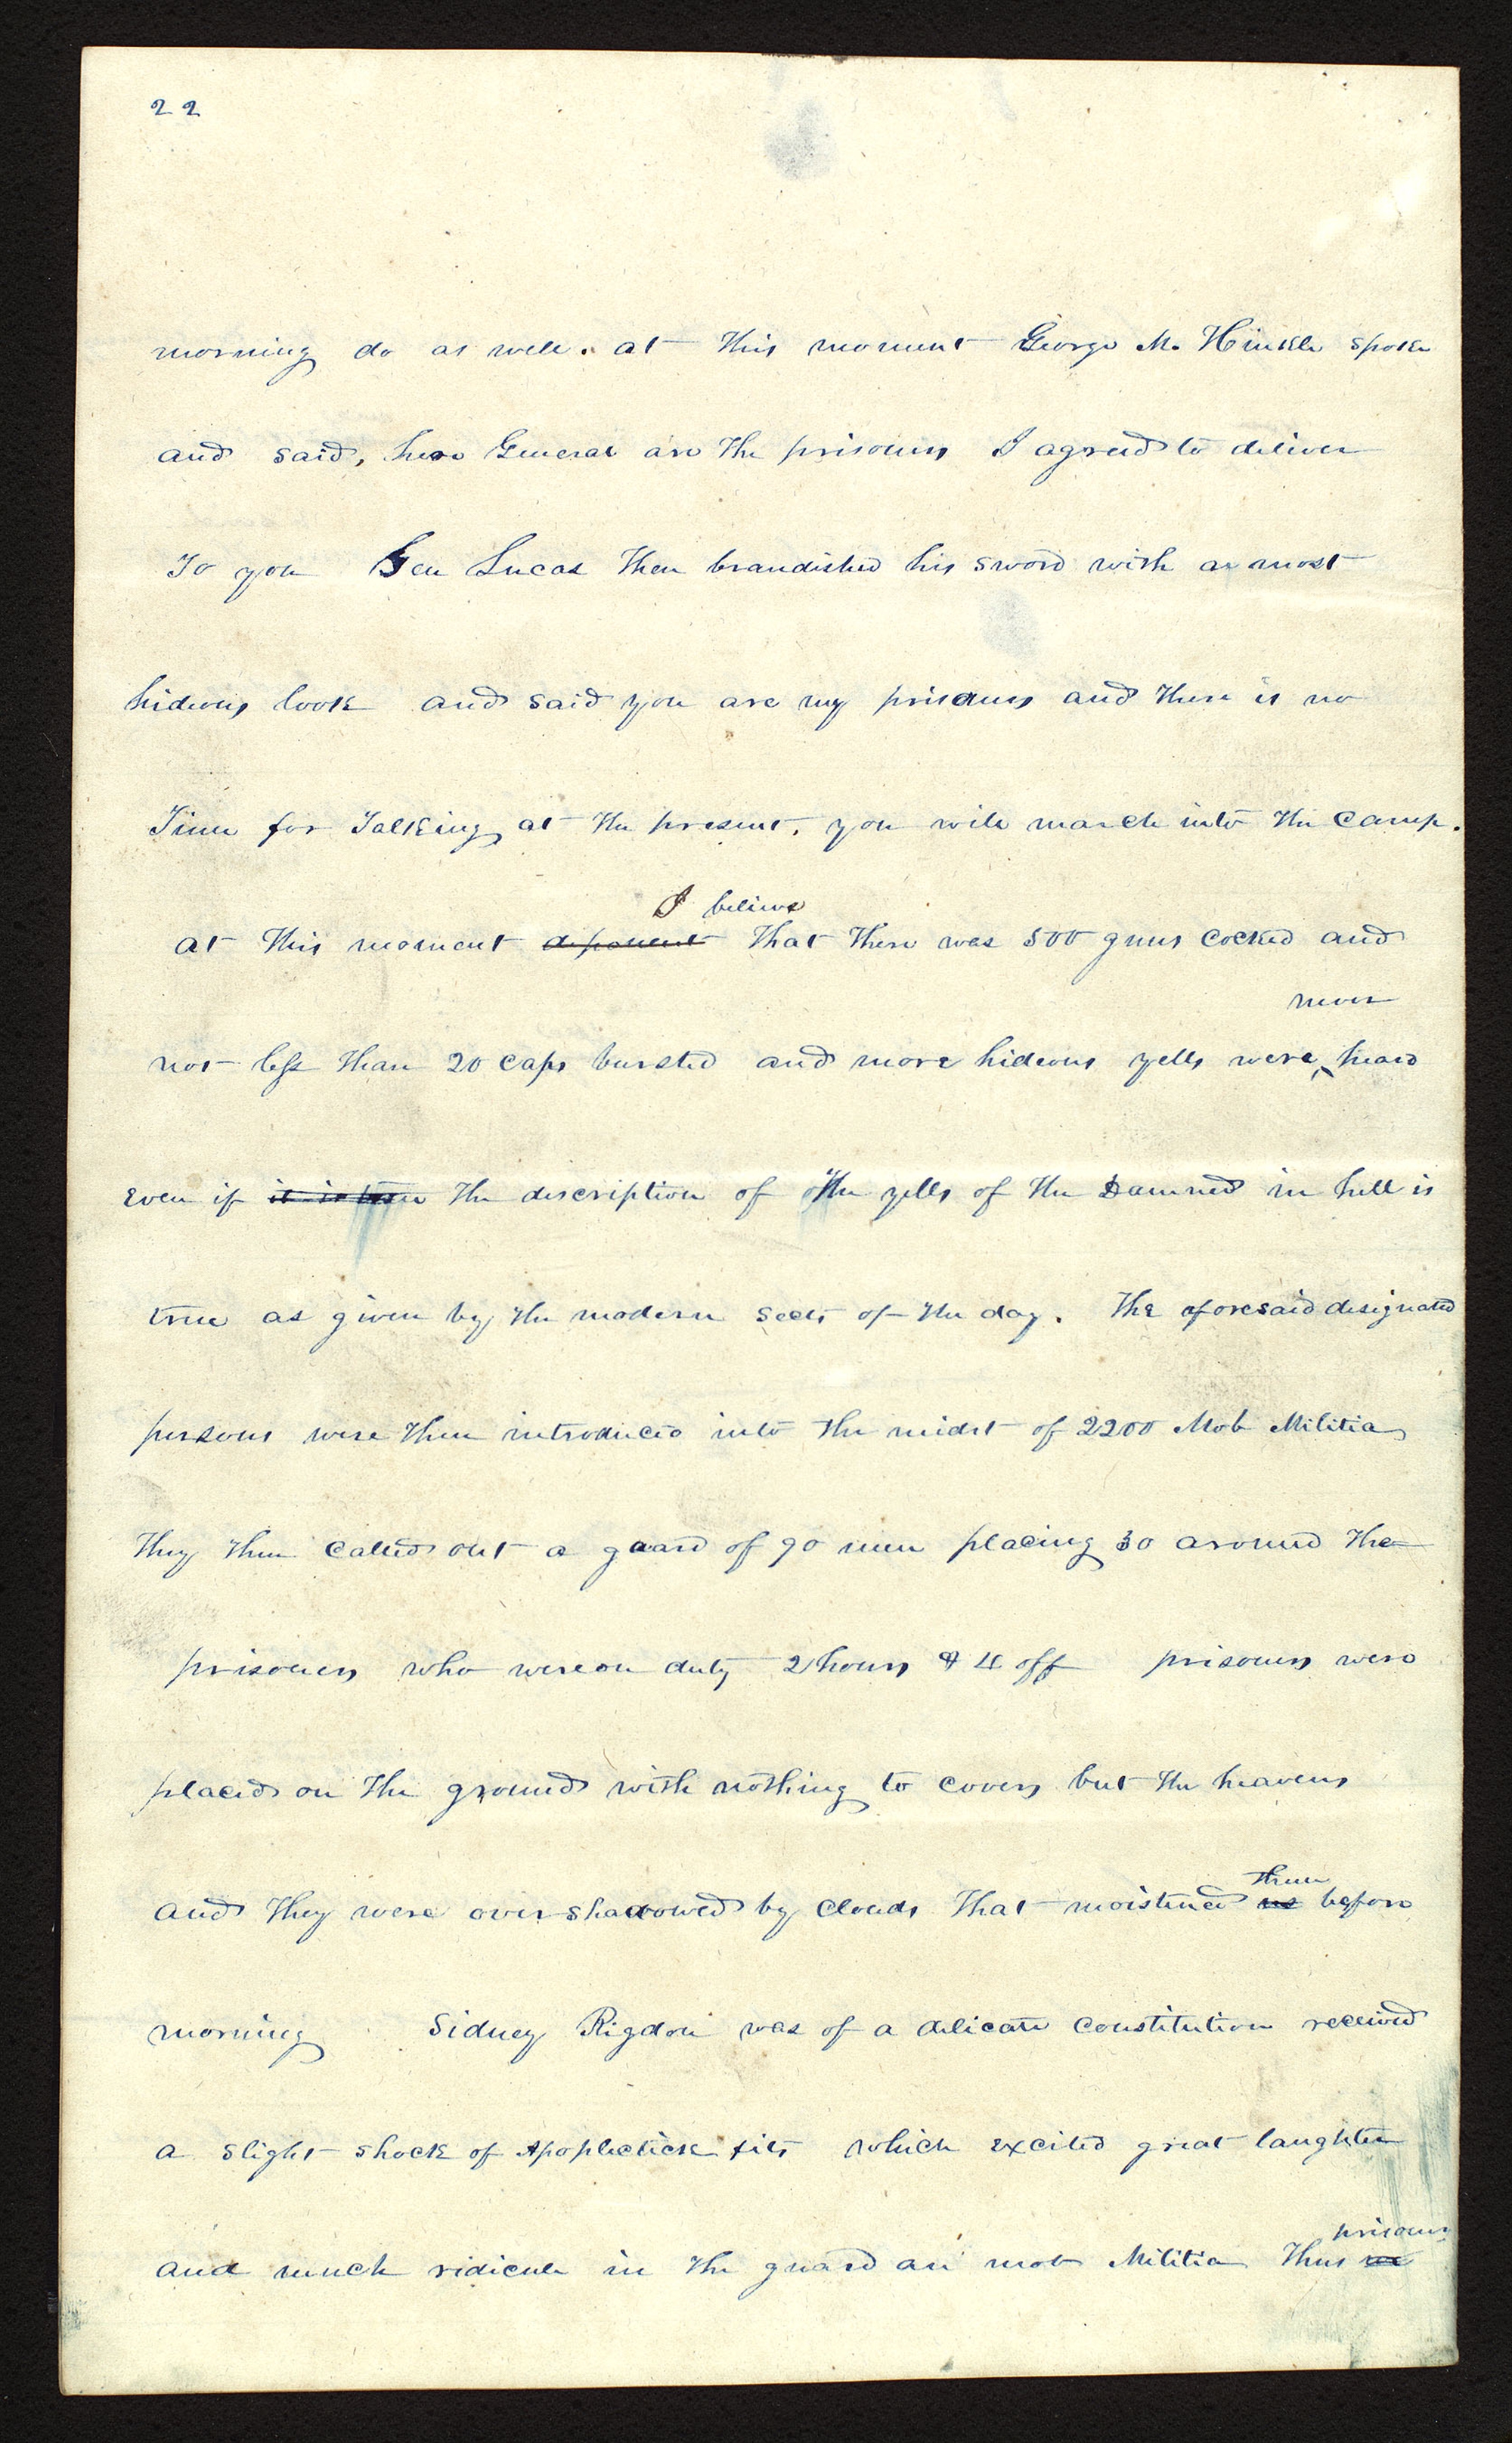 22
morning do as well. at this moment George M. Hinkle spoke
and said, here General are the prisoners I agreed to deliver
To you Gen Lucas then brandished his sword with a most
hideous look and said you are my prisoners and there is no
Time for Talking at the present, you will march into the camp.
I believe
at this moment deponent that there was 500 guns cocked and
never
not less than 20 caps bursted and more hideous yells were ‸ heard
even if it is true the discription of the yells of the Damned in hell is
true as given by the modern sects of the day. The aforesaid designated
persons were then introduced into the midst of 2200 Mob Militia
They then called out a guard of 90 men placing 30 around the
prisoners who were on duty 2 hours & 4 off prisoners were
placed on the ground with nothing to cover but the heavens
and they were over shadowed by clouds that moistened
them
us before
morning Sidney Rigdon was of a delicate constitution received
a slight shock of Apoplectick fits which excited great laughter
prisoners
and much ridicule in the guard an mob Militia Thus we